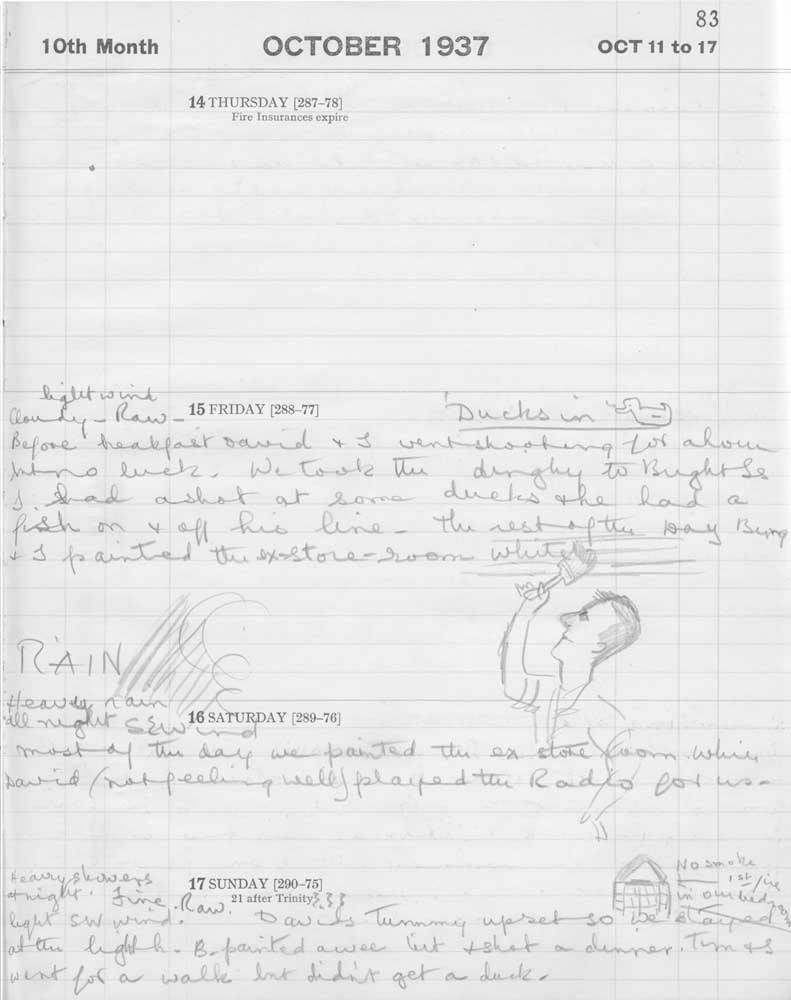 83
10th Month OCTOBER 1937 OCT 11 to 17
14 THURSDAY [287–78]
Fire Insurances expire
light wind
Cloudy – Raw –
15 FRIDAY [288–77]
Ducks in
Before breakfast David & I went shooting for a hour
but no luck. We took the dinghy to
I had a shot at some ducks & he had a
fish on & off his line – The rest of the Day Bing
& I painted the ex-store-room white
RAIN
Heavy rain
all night SE wind
16 SATURDAY [289–76]
most of the day we painted the ex store room while
David (not feeling well) played the Radio for us –
Heavy showers
at night. Fine. Raw.
light SW wind.
17 SUNDAY [290–75]
21 after Trinity
No smoke
1st fire
in our bedroom
Davids Tummy upset so we stayed
at the light h. B. painted a wee bit & shot a dinner. Tim & I
went for a walk but didn't get a duck.